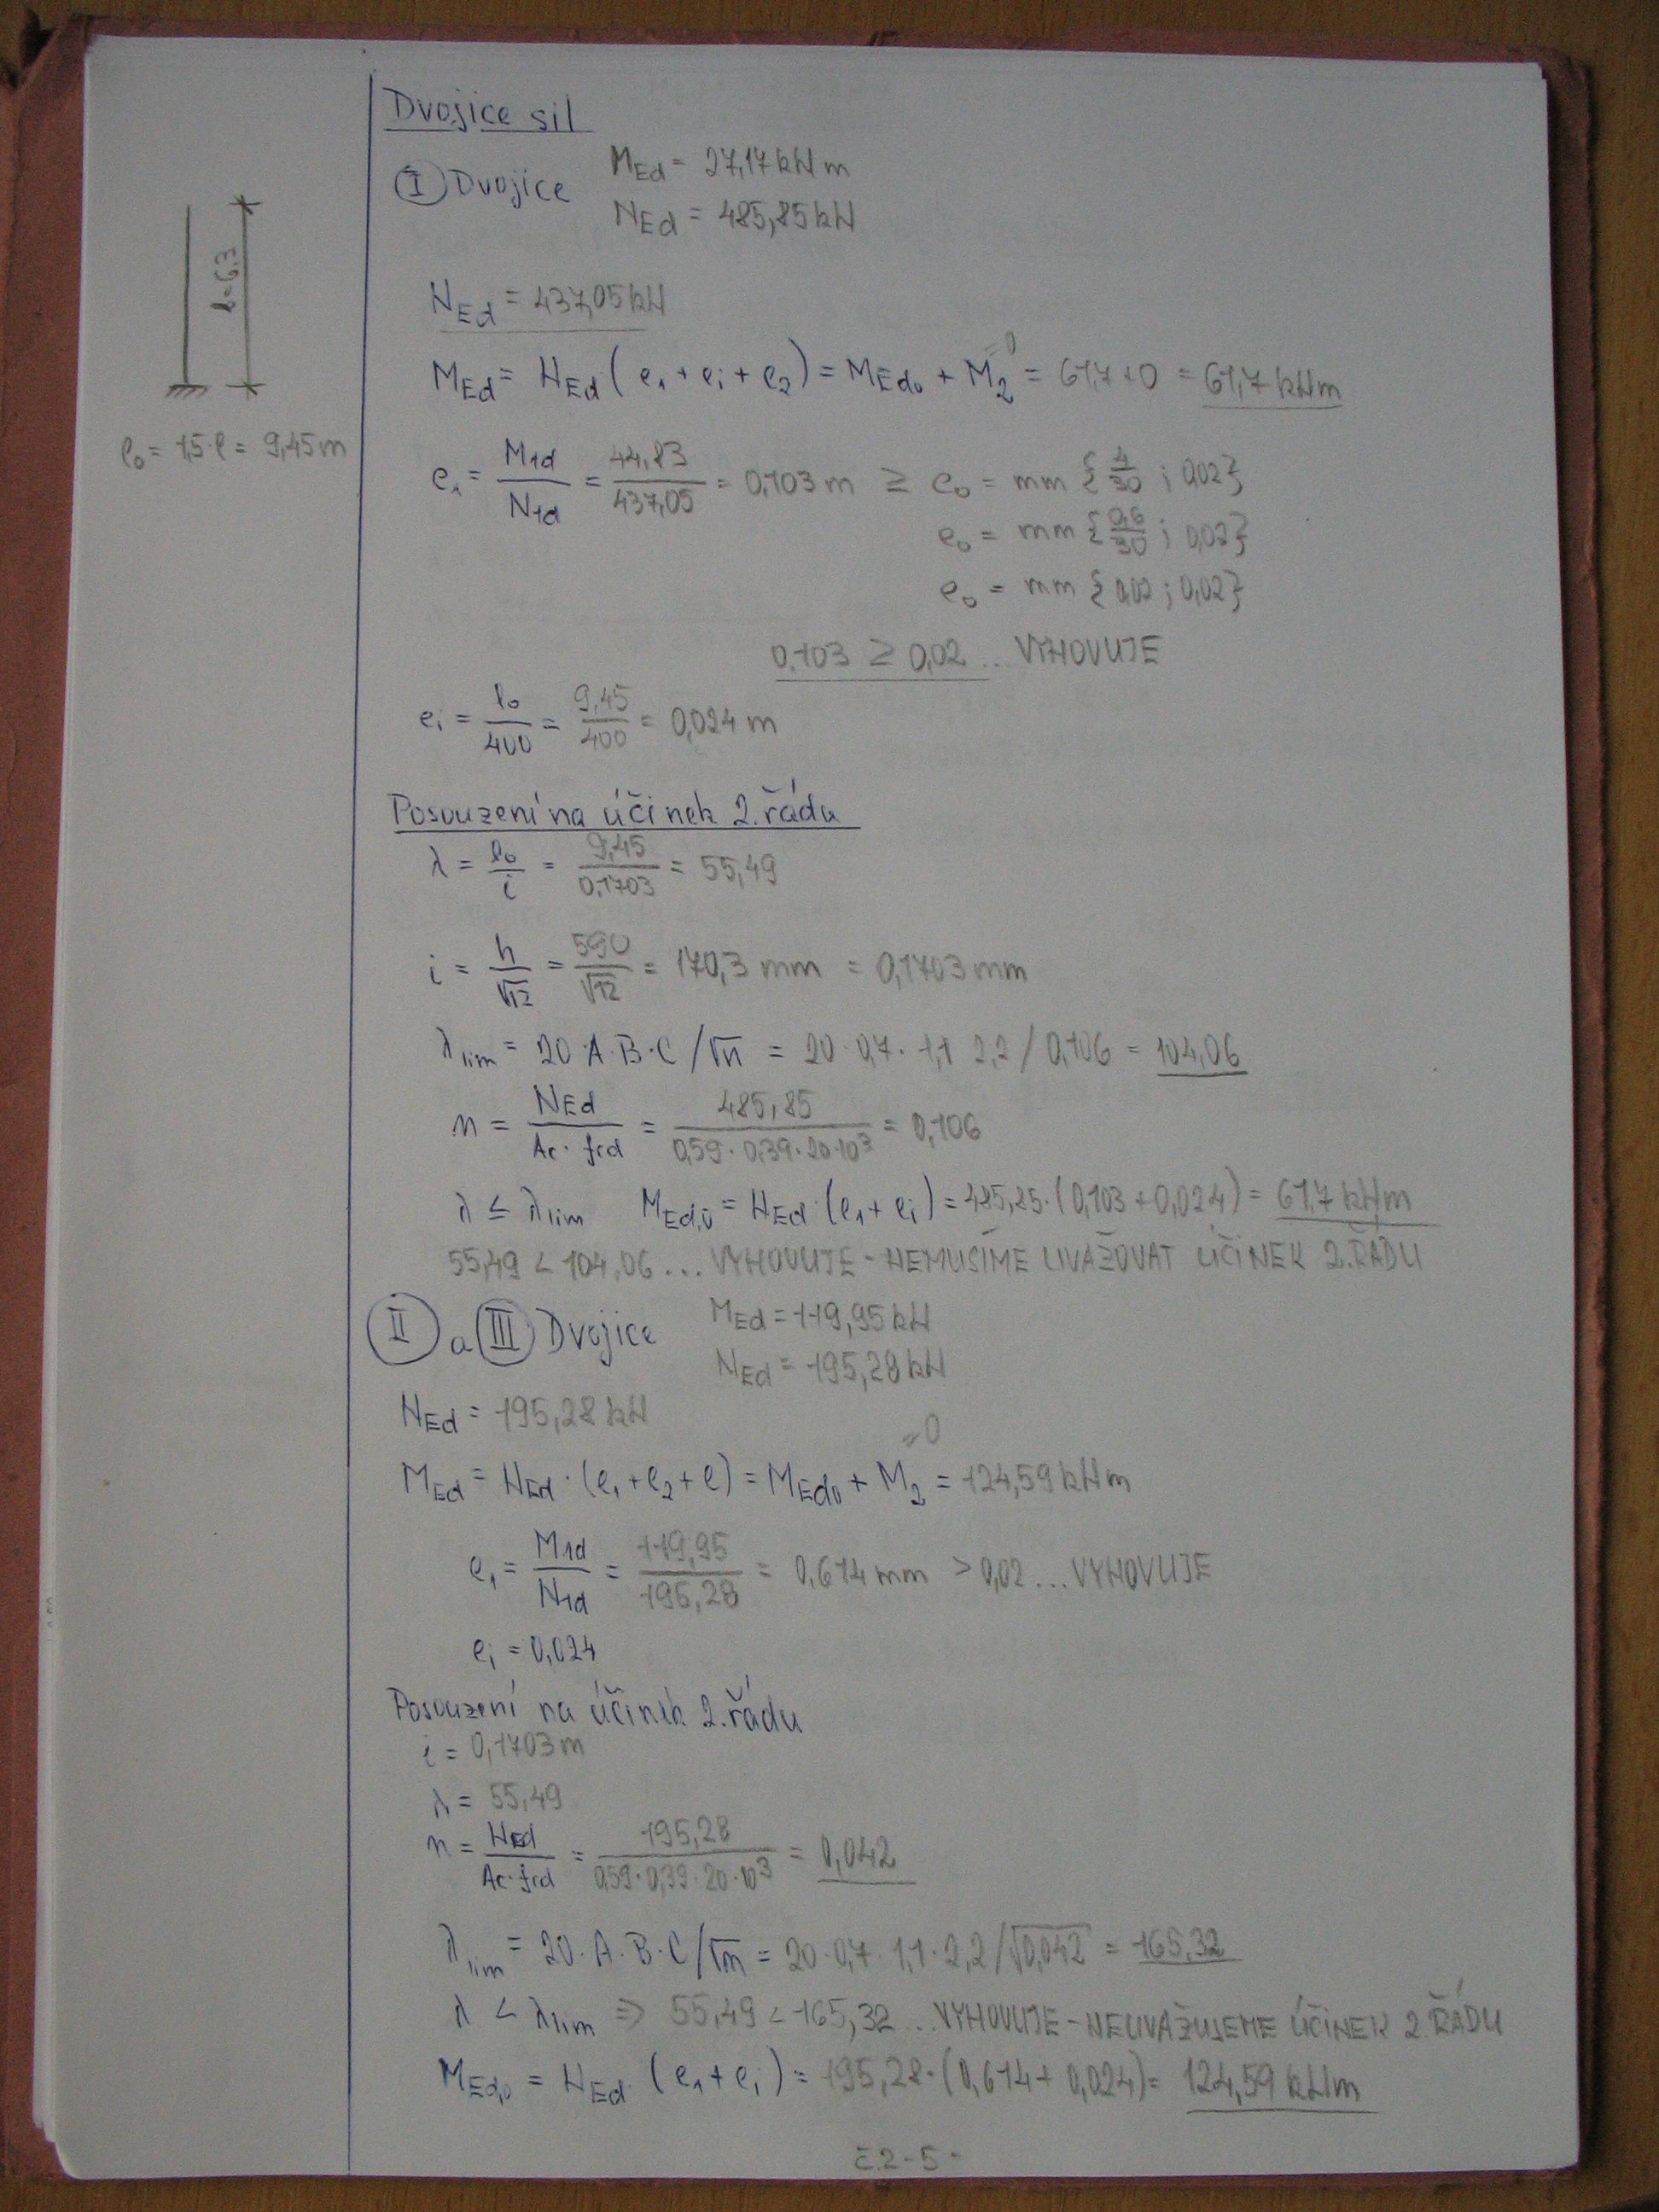 Dvojice sil
I Dvojice
M_Ed = 27,17 kN m
N_Ed = 485,85 kN
l = 6,3
l₀ = 1,5·l = 9,45 m
N_Ed = 437,05 kN
M_Ed = N_Ed (e₁ + e_i + e₂) = M_Ed0 + M₂ = 61,7 + 0 = 61,7 kNm
= 0
e₁ = M_1d / N_1d = 44,83 / 437,05 = 0,103 m ≥ e₀ = mm { /30 ; 0,02}
e₀ = mm {0,6/30 ; 0,02}
e₀ = mm {0,02 ; 0,02}
0,103 ≥ 0,02 ... VYHOVUJE
e_i = l₀/400 = 9,45/400 = 0,024 m
Posouzení na účinek 2. řádu
λ = l₀/i = 9,45/0,1703 = 55,49
i = h/√12 = 590/√12 = 170,3 mm = 0,1703 mm
λ_lim = 20·A·B·C/√n = 20·0,7·1,1 2,2/0,106 = 104,06
n = N_Ed / Ac·fcd = 485,85 / 0,59·0,39·20·10³ = 0,106
λ ≤ λ_lim M_Ed,0 = N_Ed·(e₁ + e_i) = 485,85·(0,103 + 0,024) = 61,7 kNm
55,49 < 104,06 ... VYHOVUJE - NEMUSÍME UVAŽOVAT ÚČINEK 2. ŘÁDU
II a III Dvojice
M_Ed = 119,95 kN
N_Ed = 195,28 kN
N_Ed = 195,28 kN
= 0
M_Ed = N_Ed·(e₁ + e₂ + e) = M_Ed0 + M₂ = 124,59 kNm
e₁ = M_1d / N_1d = 119,95 / 195,28 = 0,614 mm > 0,02 ... VYHOVUJE
e_i = 0,024
Posouzení na účinek 2. řádu
i = 0,1703 m
λ = 55,49
n = N_Ed / Ac·fcd = 195,28 / 0,59·0,39·20·10³ = 0,042
λ_lim = 20·A·B·C/√n = 20·0,7·1,1·2,2/√0,042 = 165,32
λ < λ_lim ⇒ 55,49 < 165,32 ... VYHOVUJE - NEUVAŽUJEME ÚČINEK 2. ŘÁDU
M_Ed,0 = N_Ed (e₁ + e_i) = 195,28·(0,614 + 0,024) = 124,59 kNm
č.2 - 5 -